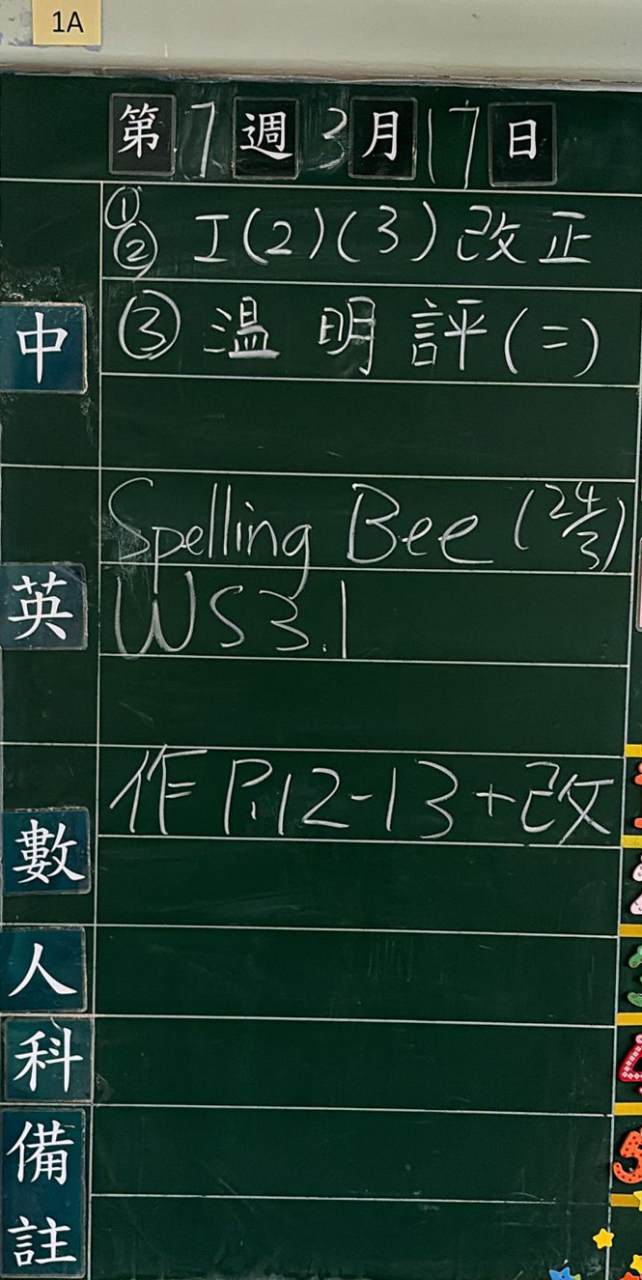 1A
第7週3月17日
①
② 工(2)(3)改正
中
③ 溫 明 評(二)
Spelling Bee (24/3)
英
WS3.1
作 P.12-13+改
數
人
科
備
註